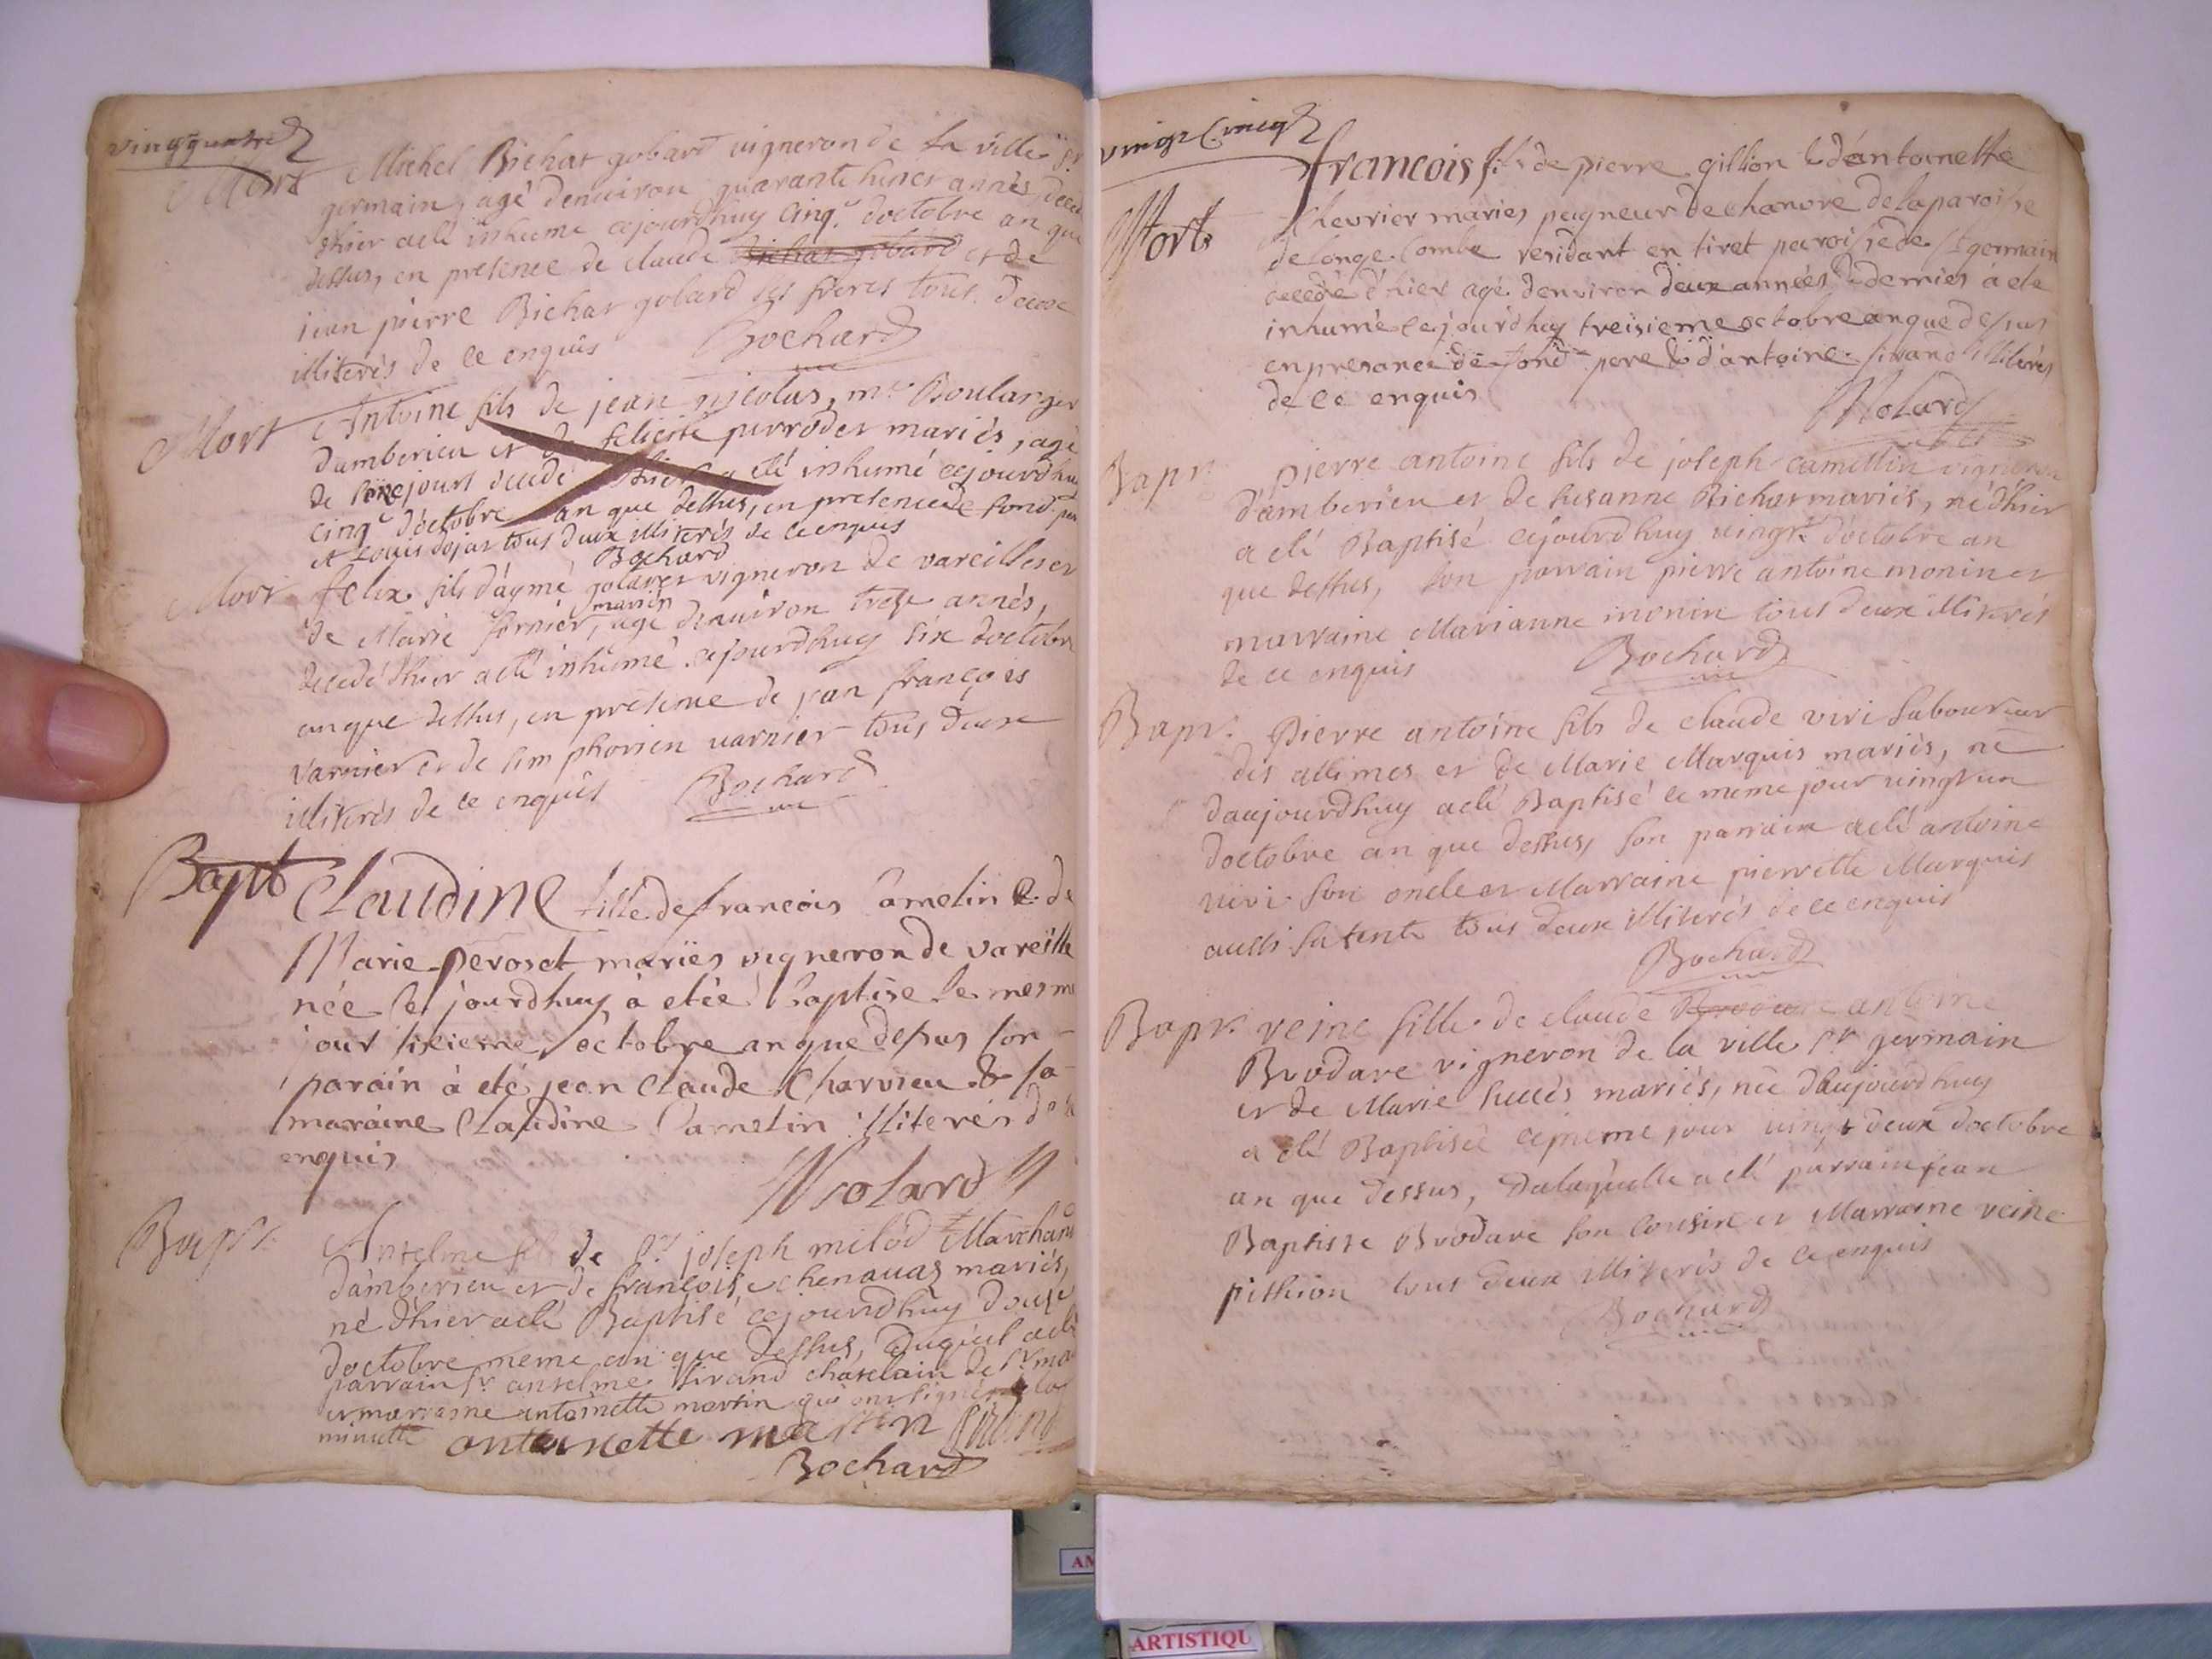 vingquatre
Mort Michel Bichat gobard vigneron de la ville St
germain, agé denviron quarante huict annés, decedé
dhier a eté inhumé cejourdhuy cinq.e doctobre an que
dessus, en presence de claude et de
jean pierre Bichat gobard ses freres tous deux
illiterés de ce enquis Bochard
Mort Antoine fils de jean nicolas, me Boulanger
damberieu et de felicité perrodet mariés, agé
de jours decedé dhier a eté inhumé cejourdhuy
cinq.e doctobre an que dessus, en presence de sond. pere
et Louis dojat tous deux illiterés de ce enquis
Bochard
Mort felix fils daymé golatet vigneron de vareilles et
mariés
de Marie fornier, agé denviron treze annés,
decedé dhier a eté inhumé cejourdhuy six doctobre
an que dessus, en presence de jean françois
varnier et de simphorien varnier tous deux
illiterés de ce enquis Bochard
Bapt Claudine fille de francois Camelin & de
Marie peroset mariës vigneron de vareille
née ce jourdhuy à etée baptise le mesme
jour sixieme octobre an que desus son
parain à eté jean claude Charvieu & sa
maraine Claudine Camelin illiterés de ce
enquis
Molard
Bapt. Antelme fils de Sr joseph milod Marchand
damberieu et de françoise chenavaz mariés,
né dhier a eté Baptisé cejourdhuy douze
doctobre meme an que dessus, duquel a eté
parrain Sr antelme sirand chatelain de St
et marraine antoinette martin qui ont signé
minutte antoinette martin Sirand
Bochard
vingt Cincq
Mort francois fils de pierre gillion & dantoinette
Chevrier mariés peigneur de chanvre de la paroisse
de longe Combe residant en tiret paroisse de St germain
decedé d'hier agé denviron deux années & demies à eté
inhumé cejourdhuy treisieme octobre an que desus
en presance de sond pere & d'antoine sirand illiterés
de ce enquis
Molard
Bapt pierre antoine fils de joseph camellin vigneron
damberieu et de susanne Bichat mariés, né dhier
a eté Baptisé cejourdhuy vingt doctobre an
que dessus, son parrain pierre antoine monin et
marraine Marianne monin tous deux illiterés
de ce enquis Bochard
Bapt. Pierre antoine fils de claude vivi laboureur
des allimes et de Marie Marquis mariés, né
daujourdhuy a eté Baptisé ce meme jour vingt un
doctobre an que dessus, son parrain a eté antoine
vivi son oncle et Marraine pierrette Marquis
aussi sa tente tous deux illiterés de ce enquis
Bochard
Bapt. reine fille de claude antoine
Brodare vigneron de la ville St germain
et de Marie mariés, née daujourdhuy
a eté Baptisée ce meme jour vingt deux doctobre
an que dessus, de laquelle a eté parrain jean
Baptiste Brodare son cousin et Marraine reine
pithion tous deux illiterés de ce enquis
Bochard
AM
ARTISTIQU